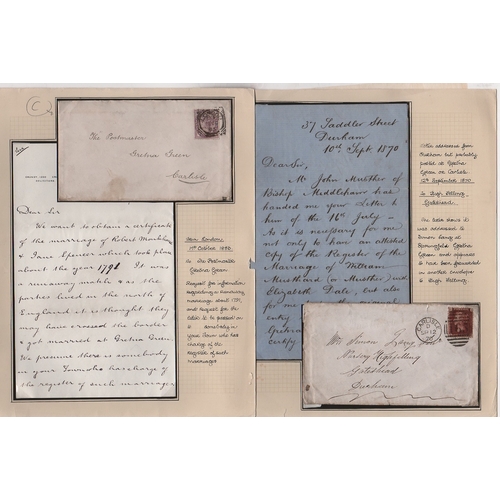 C
The Postmaster
Gretna Green
Carlisle
Dear Sir
We want to obtain a certificate
of the marriage of Robert
& Jane Spencer which took place
about the year 1791. It was
a runaway match & as the
parties lived in the north of
England it is thought they
may have crossed the border
& got married at Gretna Green
We presume there is somebody
in your Township has charge of
the register of such marriages
From London
1st October 1890
To The Postmaster
Gretna Green
Request for information
regarding a runaway
marriage about 1791,
and request for the
letter to be passed on
to somebody in
your Town who
has charge of the
Register of such
marriages
37 Saddler Street
Durham
10th Sept. 1870
Dear Sir,
Mr John
of
Bishop Middleham has
handed me your Letter to
him of the 16th July –
As it is necessary for me
not only to have an attested
copy of the Register of the
Marriage of William
and
Elizabeth Dale, but also
for me
entry
Gretna
certify
Letter addressed from
Durham but probably
posted at Gretna
Green or Carlisle
12th September 1870
To High Felling,
Gateshead
The letter
was addressed to
Simon Lang at
Springfield, Gretna
Green and appears
to have been forwarded
in another envelope
to High Felling
CARLISLE
Mr Simon Lang
Nursery High Felling
Gateshead
Durham